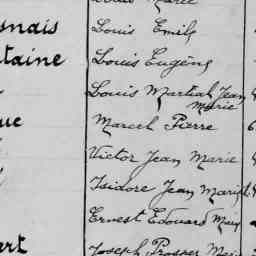 Louis Marie
snais Louis Emile
taine Louis Eugène
Louis Martial Jean
Marie
ue Marcel Pierre
Victor Jean Marie
Isidore Jean Marie
Ernest Edouard Marie
ert Joseph Prosper